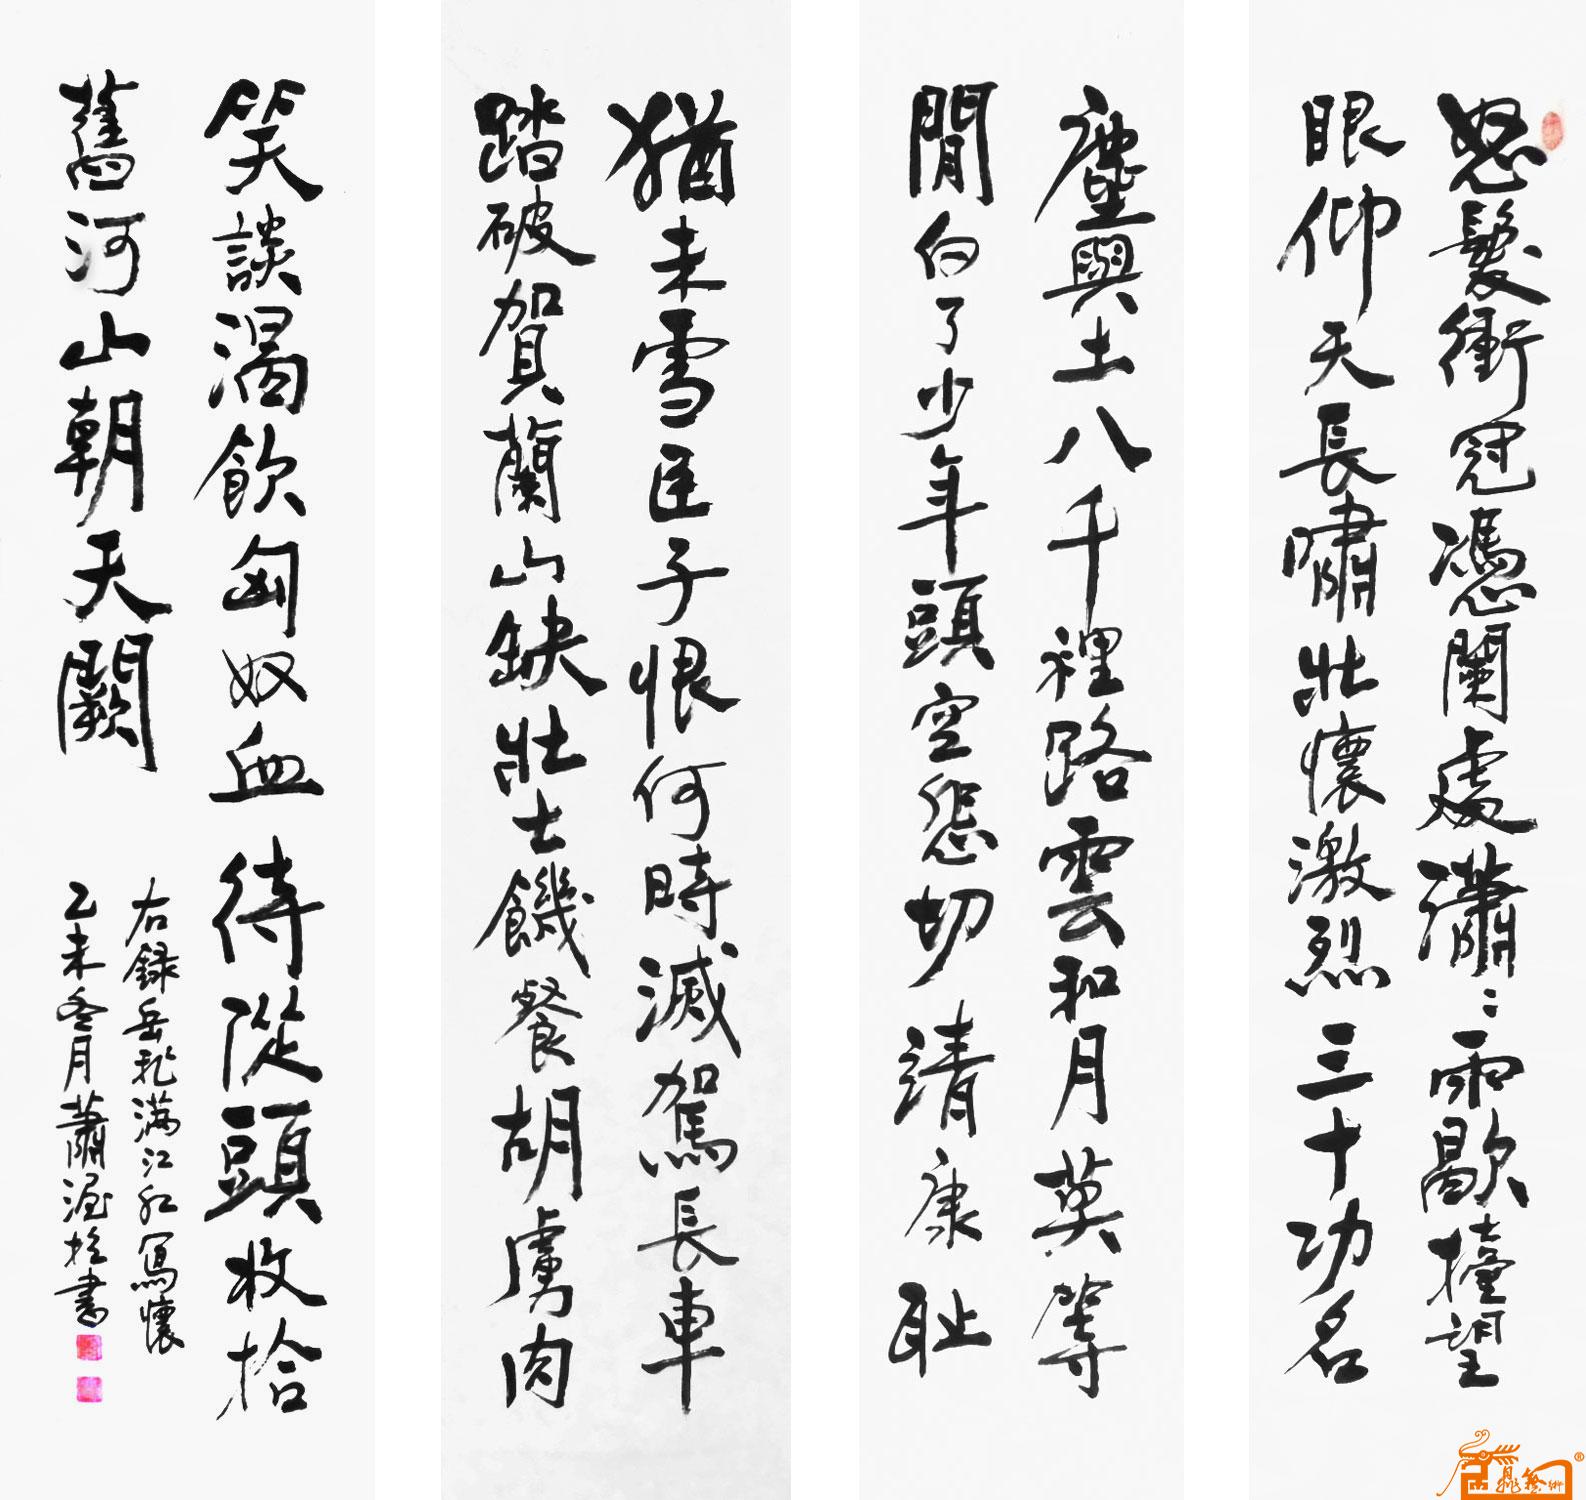 怒髮衝冠憑闌處瀟〻雨歇擡望
眼仰天長嘯壯懷激烈三十功名
塵與土八千裡路雲和月莫等
閒白了少年頭空悲切靖康耻
猶未雪臣子恨何時滅駕長車
踏破賀蘭山缺壯士饑餐胡虜肉
笑談渴飲匈奴血待從頭收拾
舊河山朝天闕
右録岳飛满江紅寫懷
乙未冬月蕭渥書